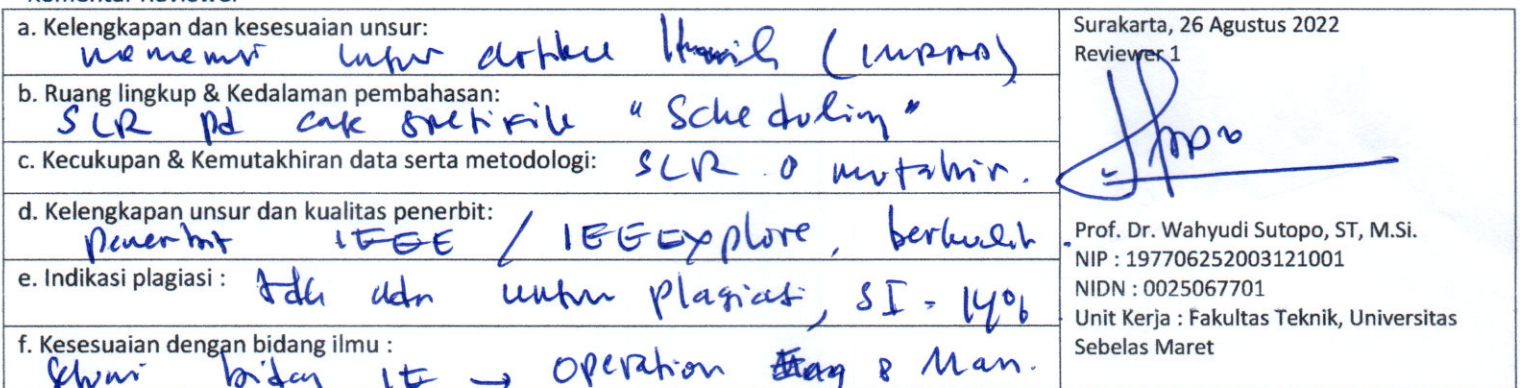 Komentar Reviewer
a. Kelengkapan dan kesesuaian unsur:
memenuhi unsur artikel Ilmiah (IMRAD)
b. Ruang lingkup & Kedalaman pembahasan:
SLR pd "Scheduling"
c. Kecukupan & Kemutakhiran data serta metodologi: SLR mutahir.
d. Kelengkapan unsur dan kualitas penerbit:
Penerbit IEEE / IEEExplore, berkualit.
e. Indikasi plagiasi : tdk ada unsur plagiat, SI = 14%
f. Kesesuaian dengan bidang ilmu :
Sesuai bidang IE → Operation & Man.
Surakarta, 26 Agustus 2022
Reviewer 1
Prof. Dr. Wahyudi Sutopo, ST, M.Si.
NIP : 197706252003121001
NIDN : 0025067701
Unit Kerja : Fakultas Teknik, Universitas
Sebelas Maret